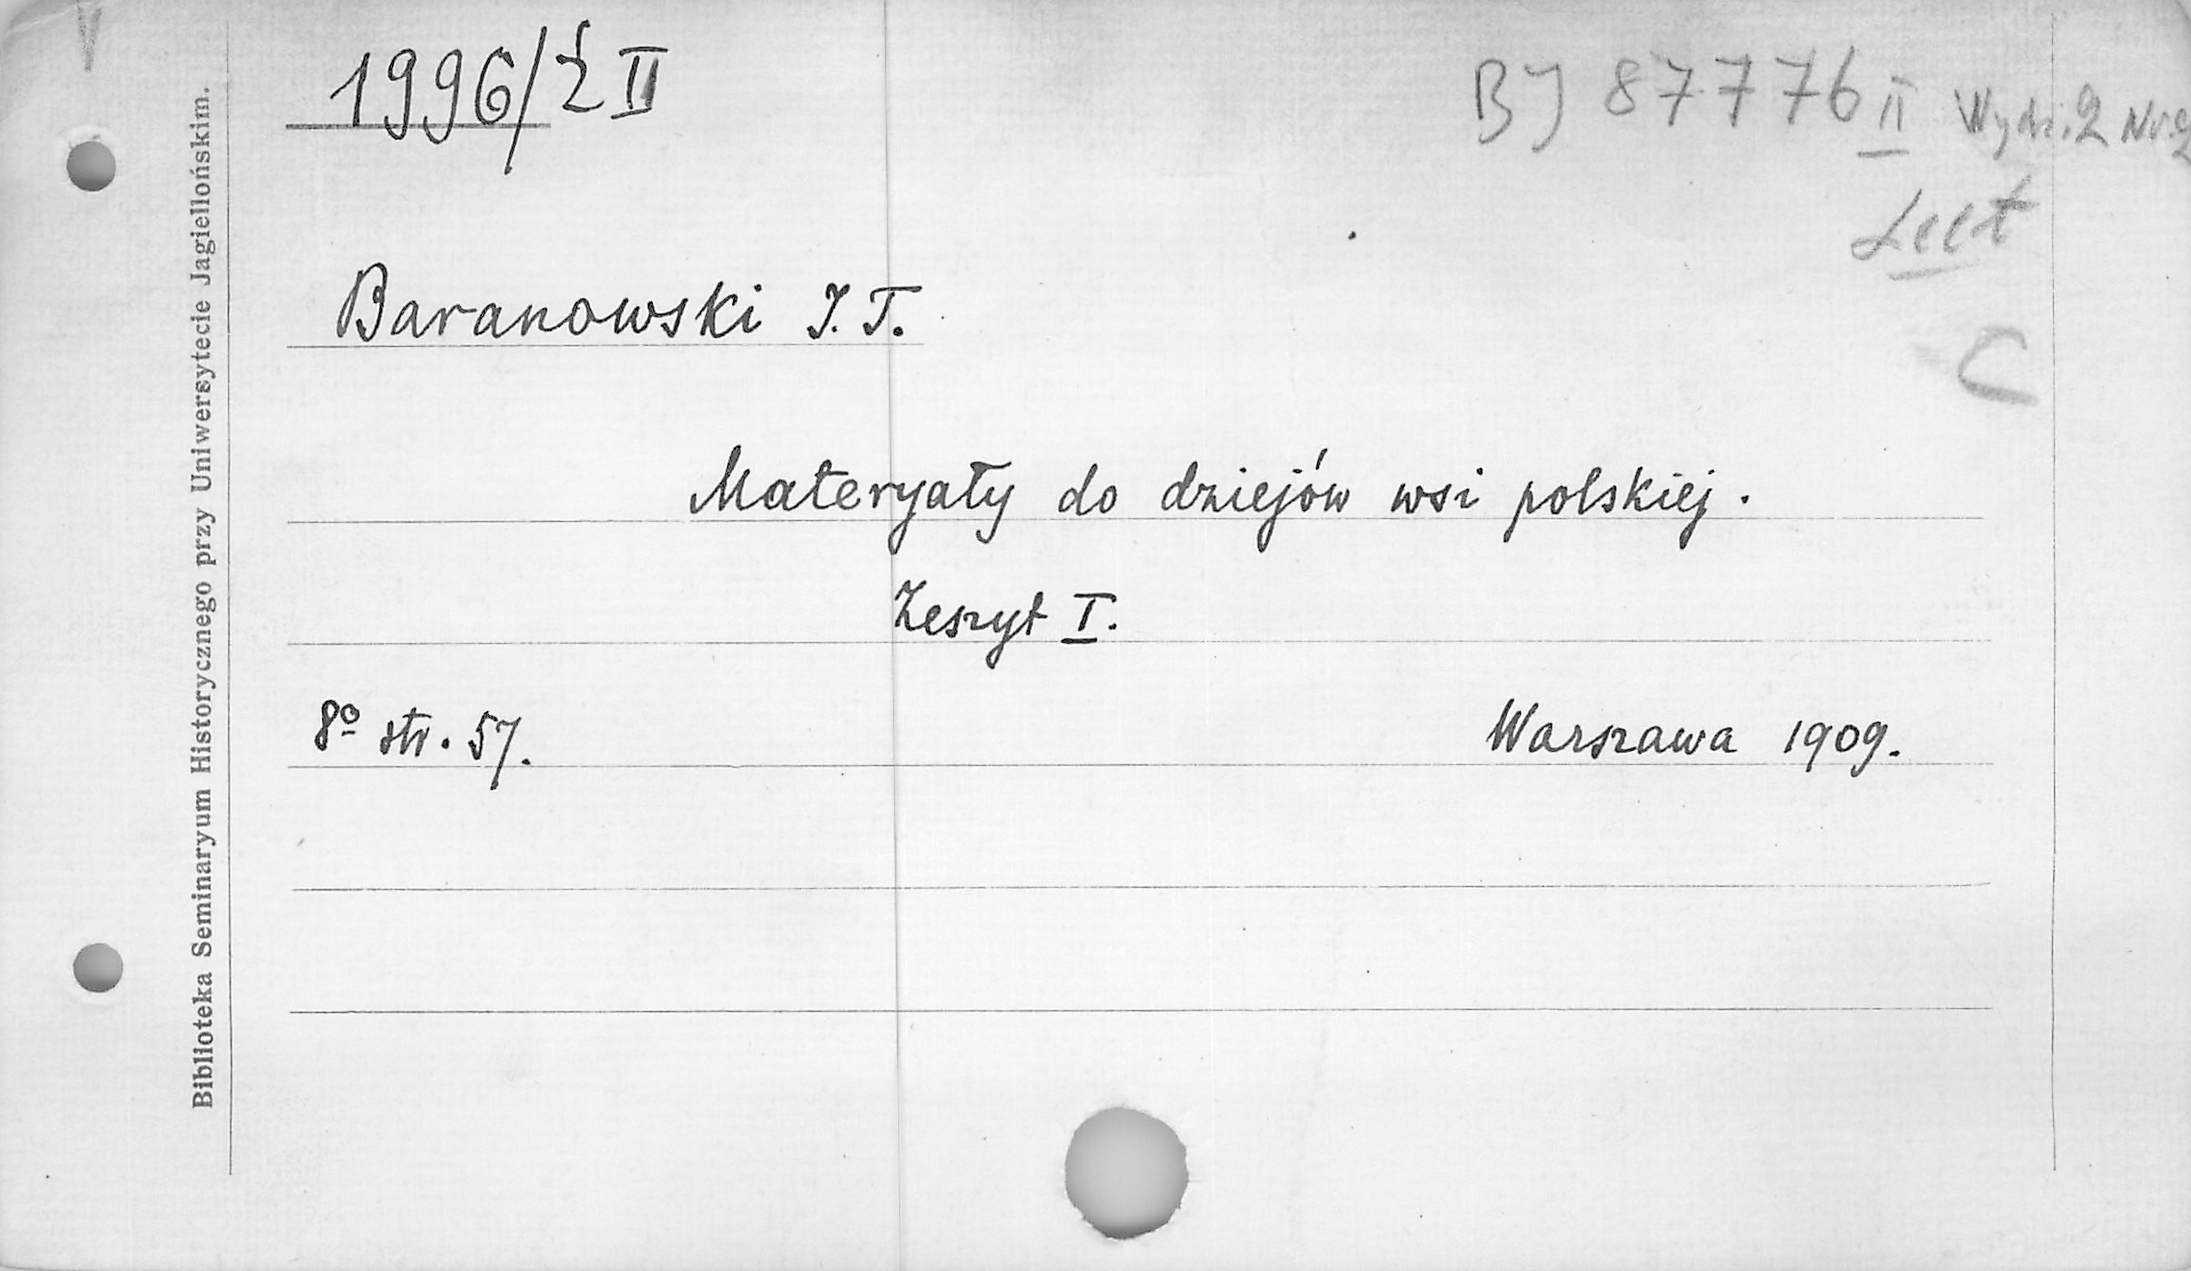 1996/Ł II
BJ 87776 II Wydz. 2 Nr. 2
C
Baranowski J. T.
Materyały do dziejów wsi polskiej.
Zeszyt I.
8º str. 57.
Warszawa 1909.
Biblioteka Seminaryum Historycznego przy Uniwersytecie Jagiellońskim.